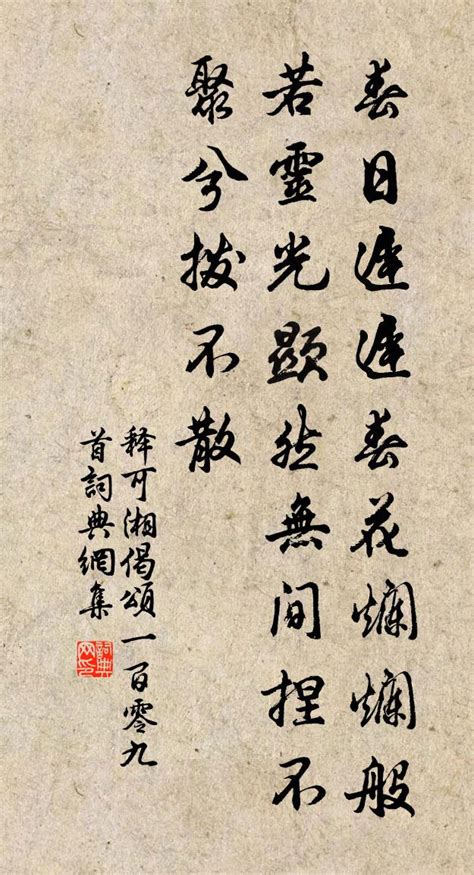 春日遲遲春花爛爛般
若靈光顯然無間捏不
聚兮撥不散
释可湘偈頌一百零九
首詞典網集
詞典
网印